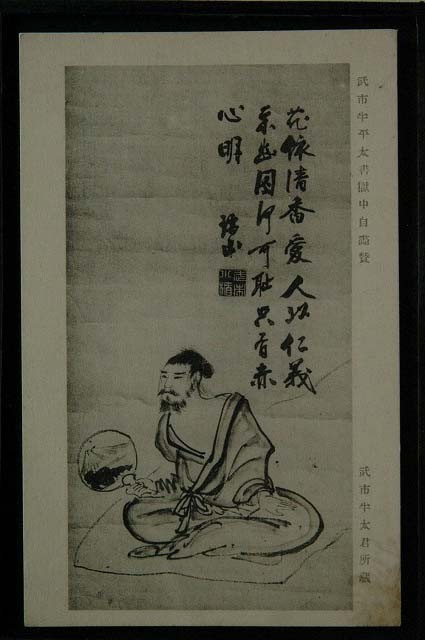 武市半平太書獄中自畵賛
武市半太君所藏
花依清香愛人以仁義
栄幽囚何可耻只有赤
心明
瑞山
武市
小楯